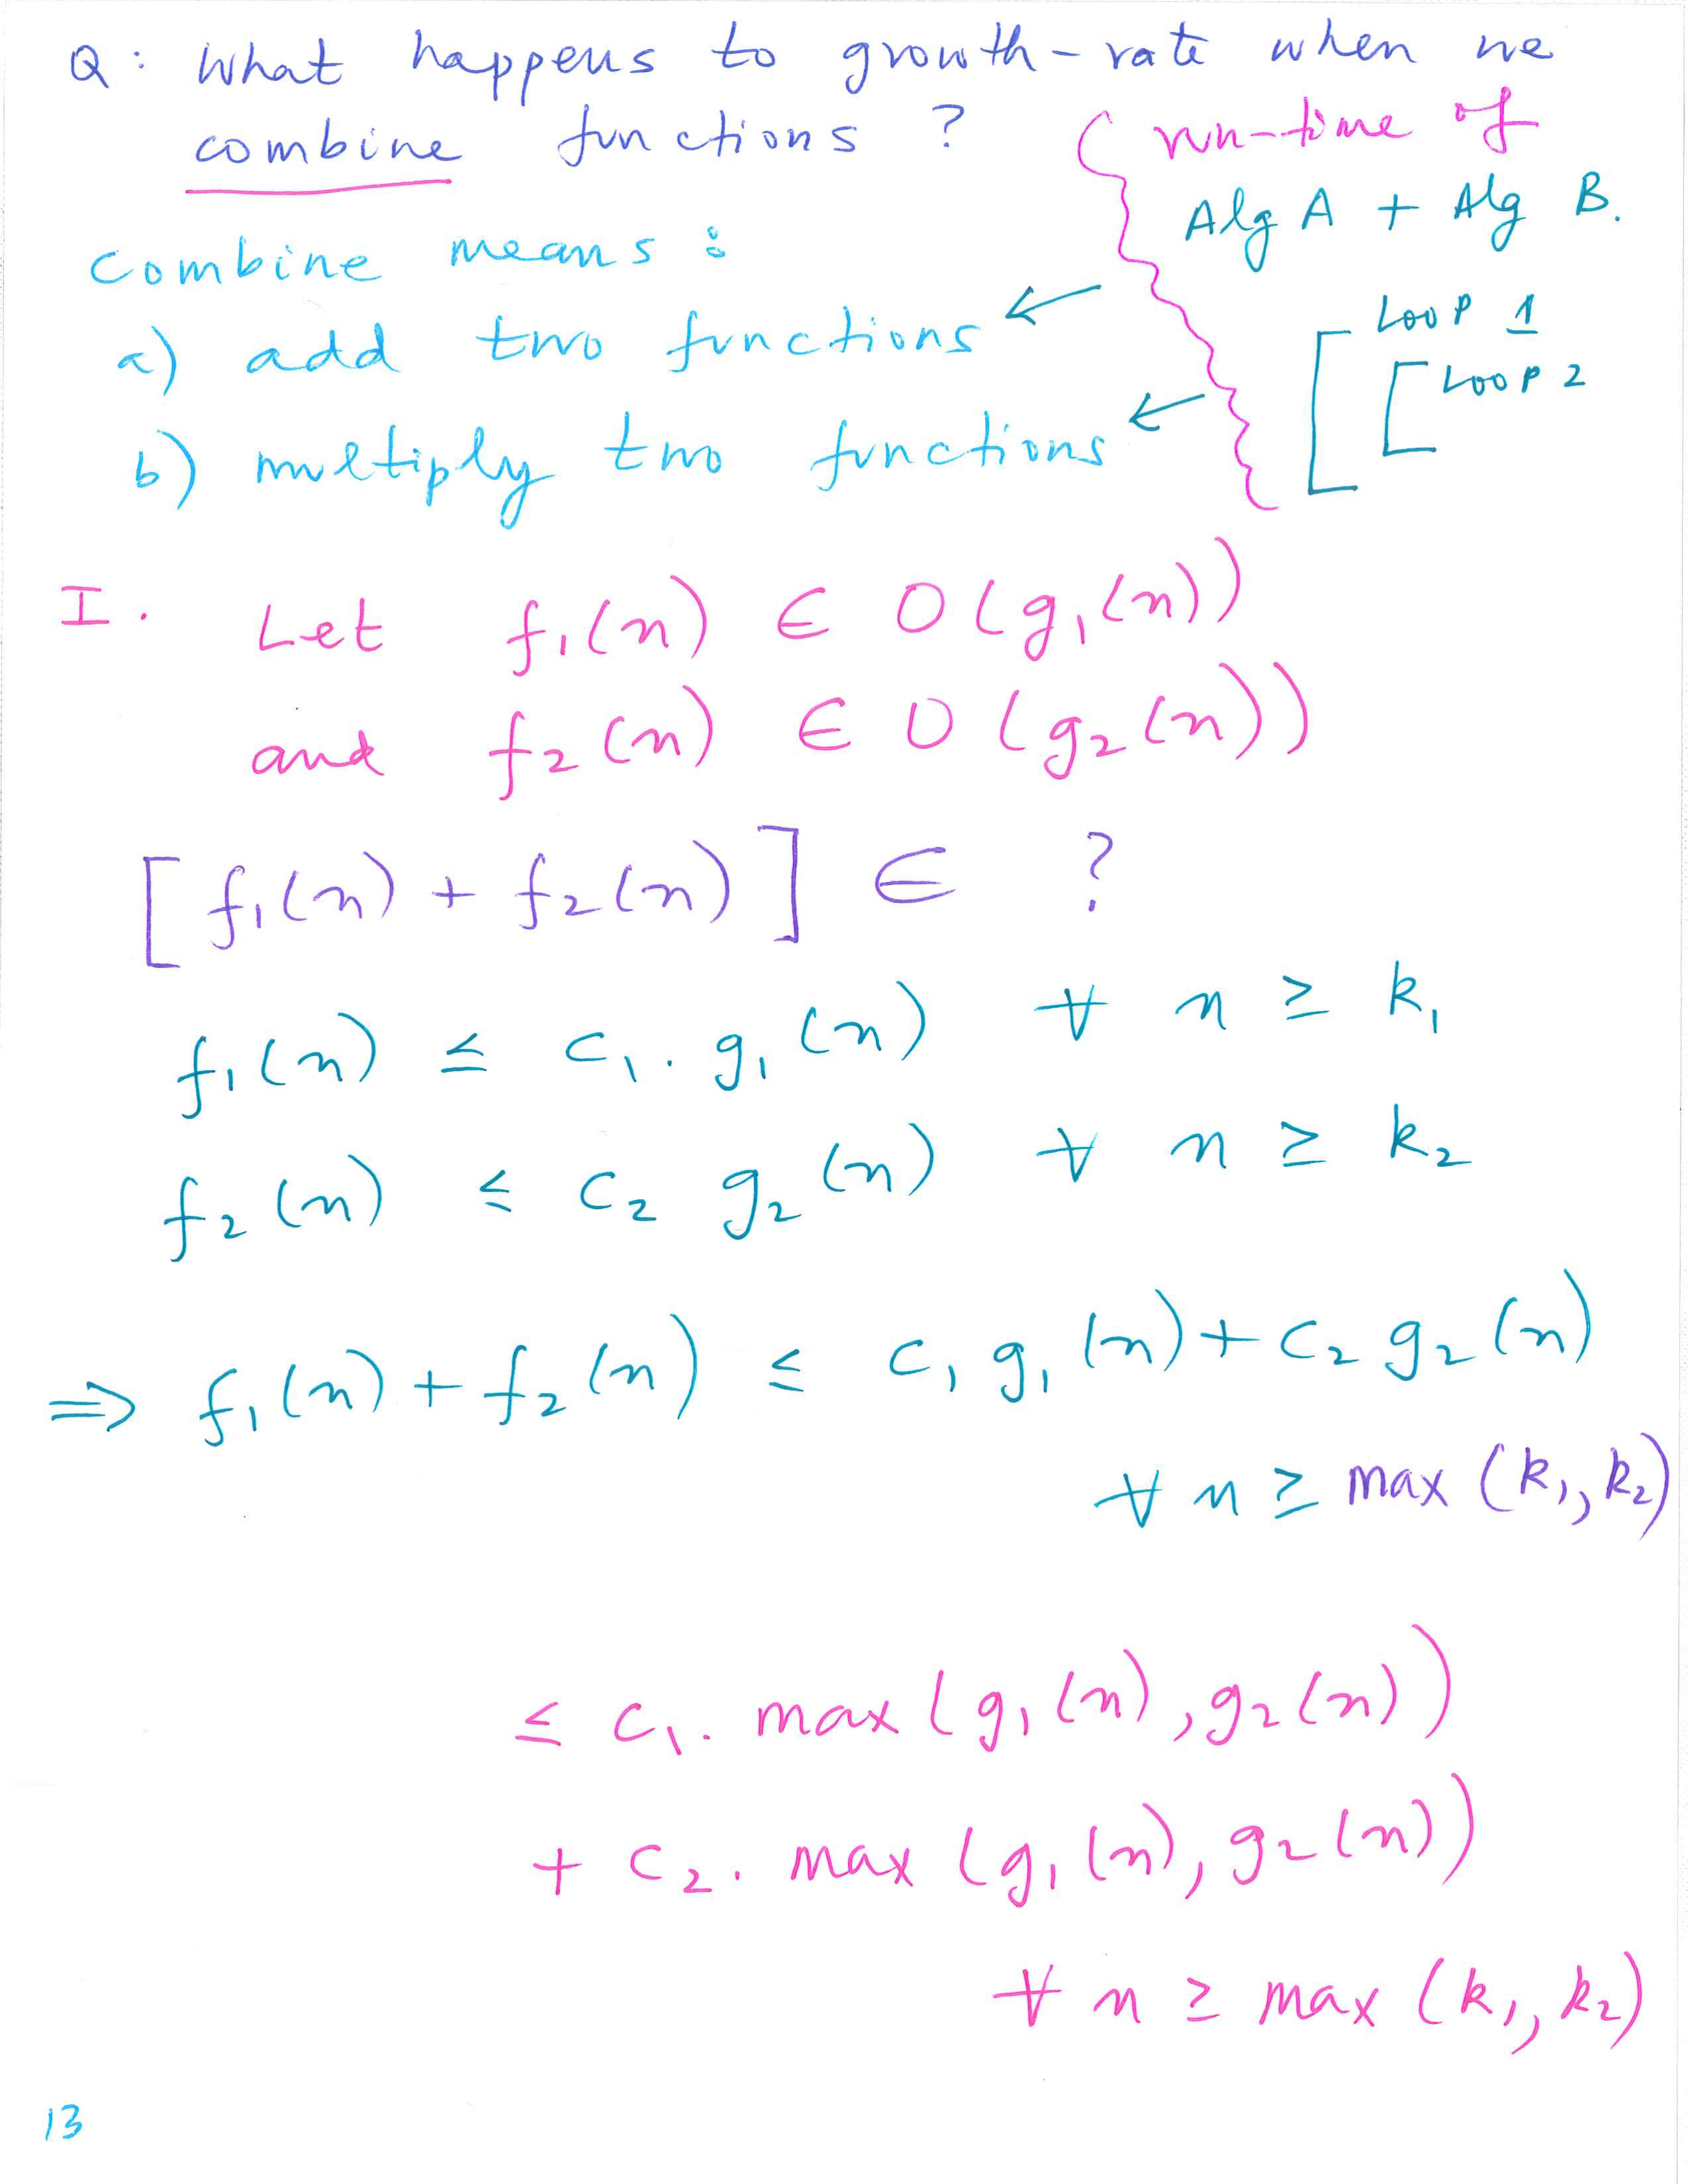 Q: What happens to growth-rate when we
combine functions? (run-time of
Alg A + Alg B.
combine means:
a) add two functions ←
LOOP 1
LOOP 2
b) multiply two functions ←
I. Let f₁(n) ∈ O(g₁(n))
and f₂(n) ∈ O(g₂(n))
[f₁(n) + f₂(n)] ∈ ?
f₁(n) ≤ c₁. g₁(n) ∀ n ≥ k₁
f₂(n) ≤ c₂ g₂(n) ∀ n ≥ k₂
⇒ f₁(n) + f₂(n) ≤ c₁ g₁(n) + c₂ g₂(n)
∀ n ≥ max (k₁, k₂)
≤ c₁. max(g₁(n), g₂(n))
+ c₂. max (g₁(n), g₂(n))
∀ n ≥ max (k₁, k₂)
13